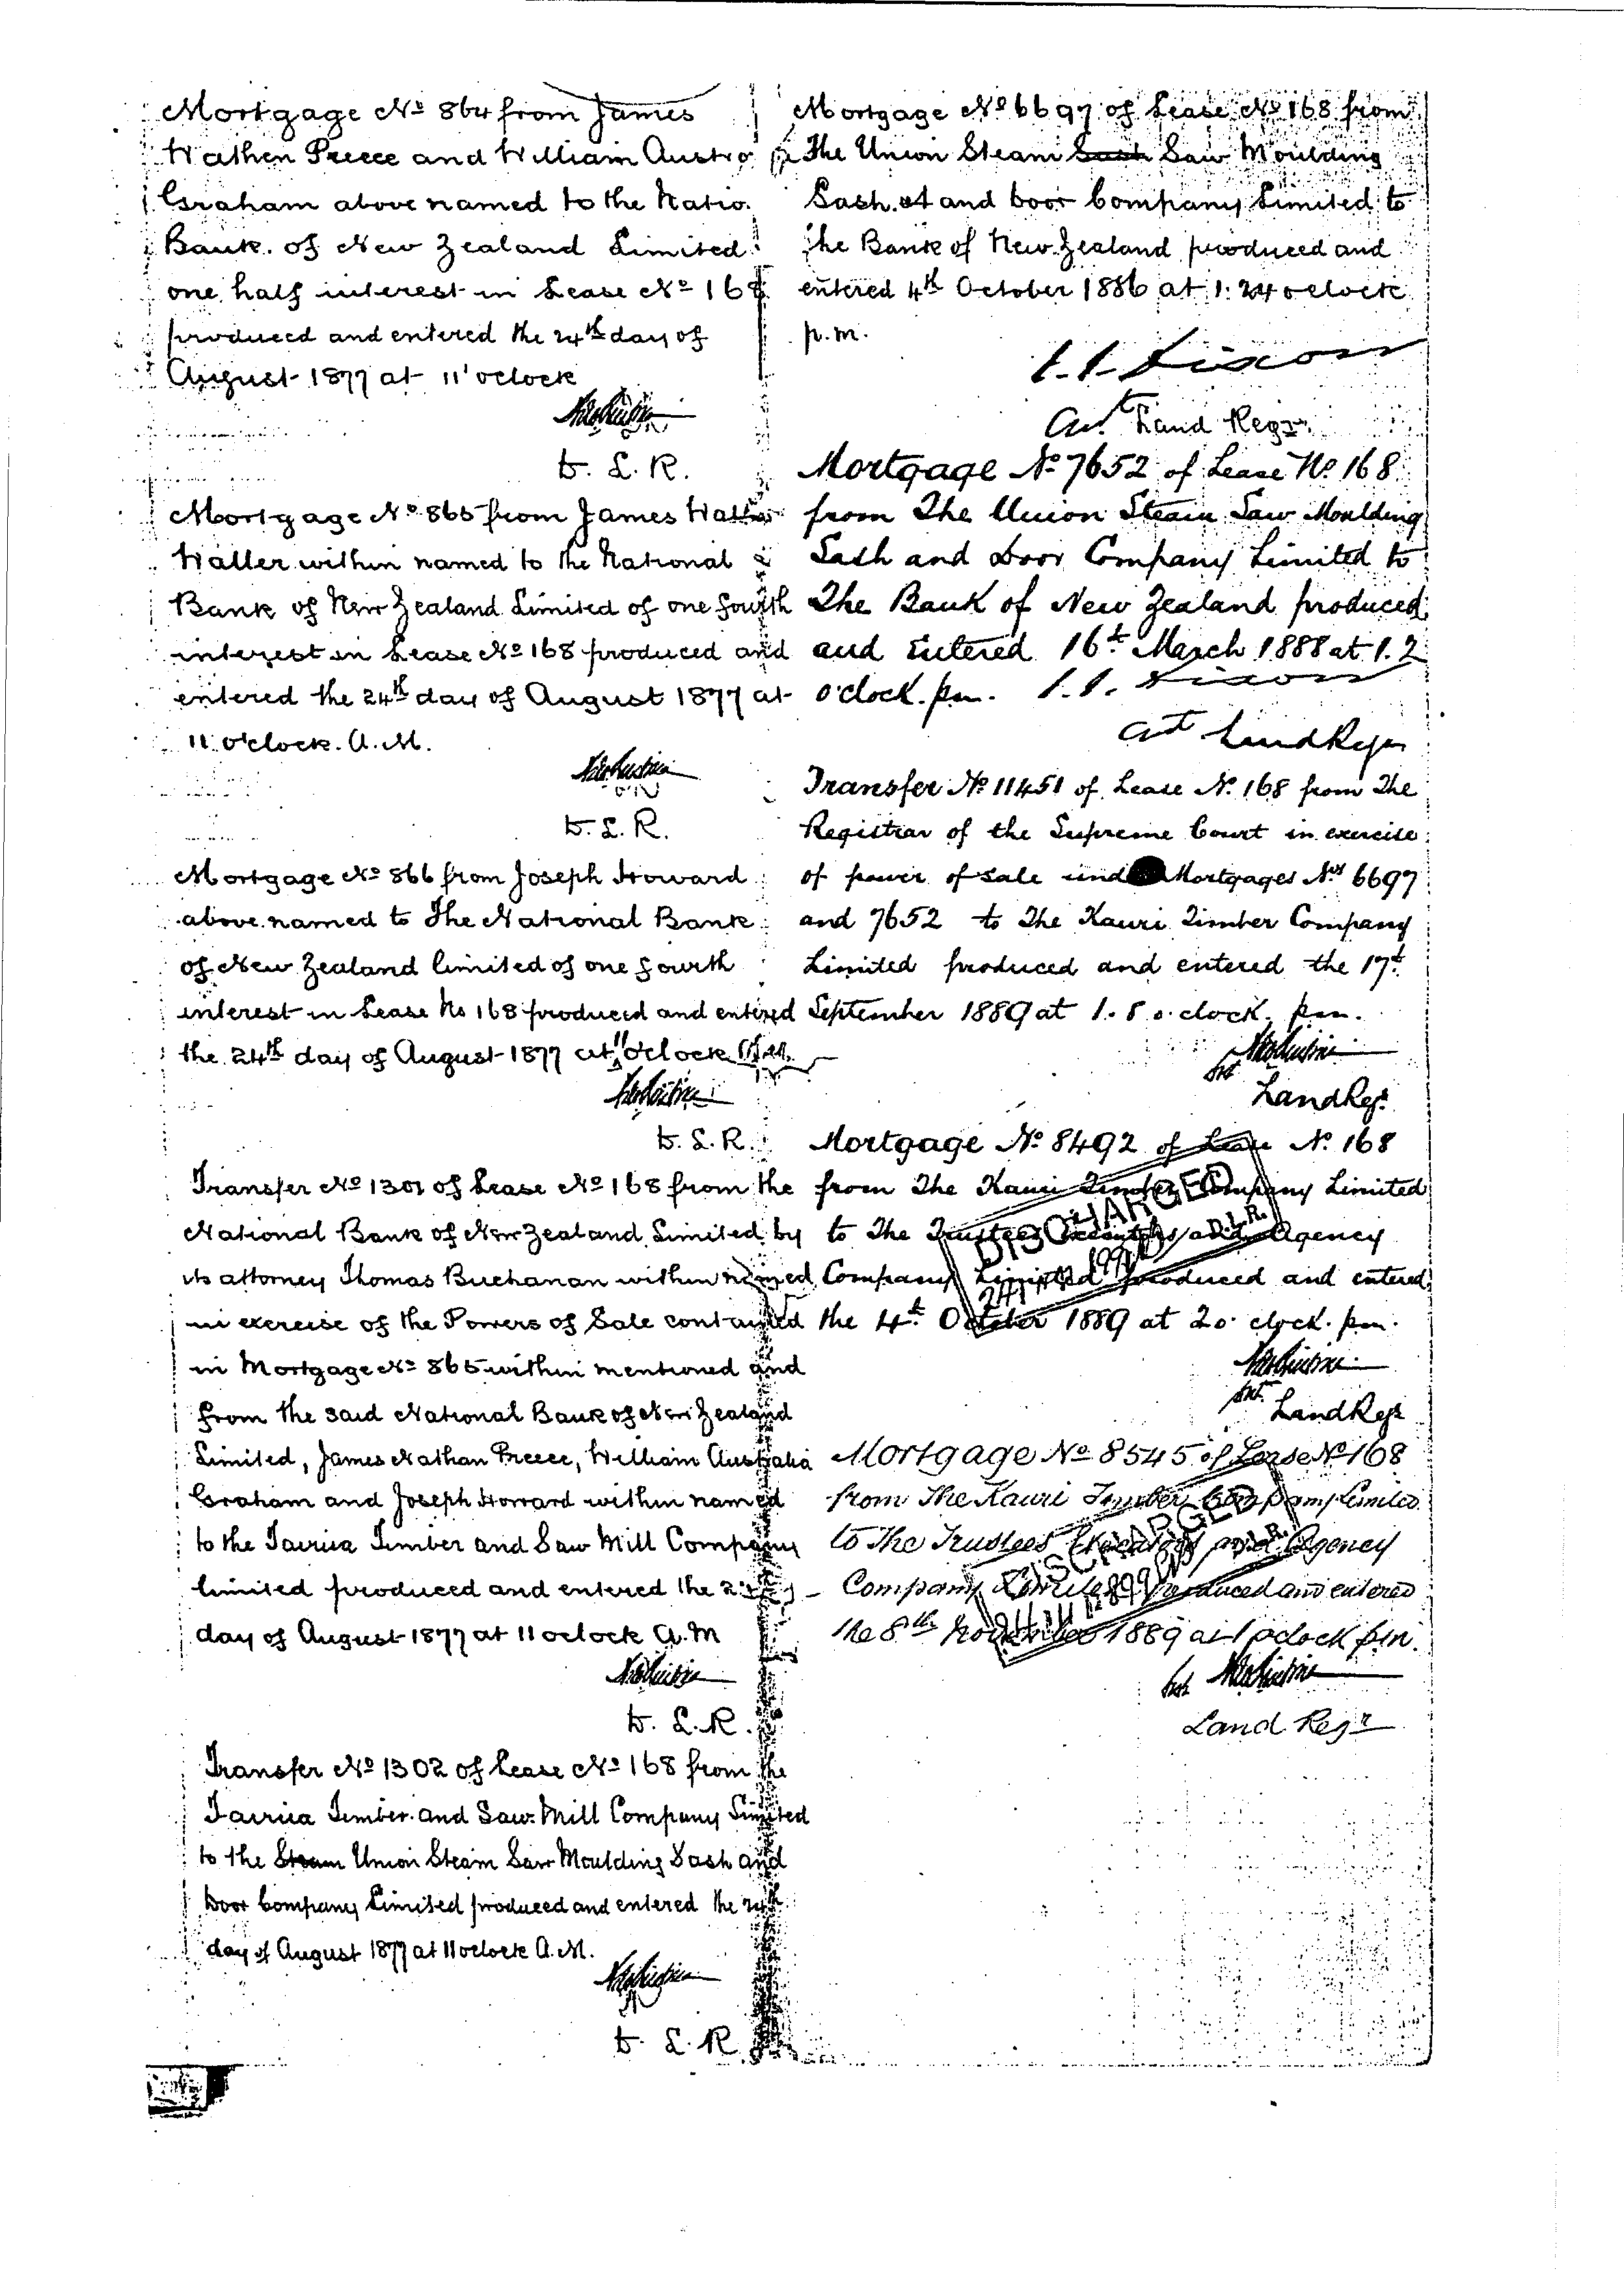 Mortgage No 864 from James
Wathen Preece and William Austra
Graham above named to the Natio
Bank of New Zealand Limited
one half interest in Lease No 168
produced and entered the 24th day of
August 1877 at 11 oclock
D. L. R.
Mortgage No 865 from James
Waller within named to the National
Bank of New Zealand Limited of one fourth
interest in Lease No 168 produced and
entered the 24th day of August 1877 at
11 o'clock. A.M.
D. L. R.
Mortgage No 866 from Joseph Howard
above named to The National Bank
of New Zealand limited of one fourth
interest in Lease No 168 produced and entered
the 24th day of August 1877 at 11 oclock A.M.
D. L. R.
Transfer No 1301 of Lease No 168 from the
National Bank of New Zealand Limited by
its attorney Thomas Buchanan within named
in exercise of the Powers of Sale contained
in Mortgage No 865 within mentioned and
from the said National Bank of New Zealand
Limited, James Nathan Preece, William Australia
Graham and Joseph Howard within named
to the Tairua Timber and Saw Mill Company
limited produced and entered the
day of August 1877 at 11 oclock A.M
D. L. R.
Transfer No 1302 of Lease No 168 from the
Tairua Timber and Saw Mill Company Limited
to the Steam Union Steam Saw Moulding Sash and
Door Company Limited produced and entered the 24th
day of August 1877 at 11 oclock A.M.
D. L. R
Mortgage No 6697 of Lease No 168 from
The Union Steam Sash Saw Moulding
Sash and Door Company Limited to
the Bank of New Zealand produced and
entered 4th October 1886 at 1.24 oclock
p.m.
Land Regr
Mortgage No 7652 of Lease No 168
from The Union Steam Saw Moulding
Sash and Door Company Limited to
The Bank of New Zealand produced
and entered 16t March 1888 at 1.2
o'clock. pm.
Land Regr
Transfer No 11451 of Lease No 168 from The
Registrar of the Supreme Court in exercise
of power of sale under Mortgages Nos 6697
and 7652 to The Kauri Timber Company
Limited produced and entered the 17t
September 1889 at 1.8 o.clock. pm.
Land Regr
Mortgage No 8492 of Lease No 168
from The Kauri Timber Company Limited
to The Trustees Executors and Agency
Company Limited produced and entered
the 4t October 1889 at 2 o. clock. pm.
DISCHARGED
D.L.R.
Land Regr
Mortgage No 8545 of Lease No 168
from The Kauri Timber Company Limited
to The Trustees Executors and Agency
Company Limited produced and entered
the 8th November 1889 at 1 oclock pm.
DISCHARGED
D.L.R.
Land Regr